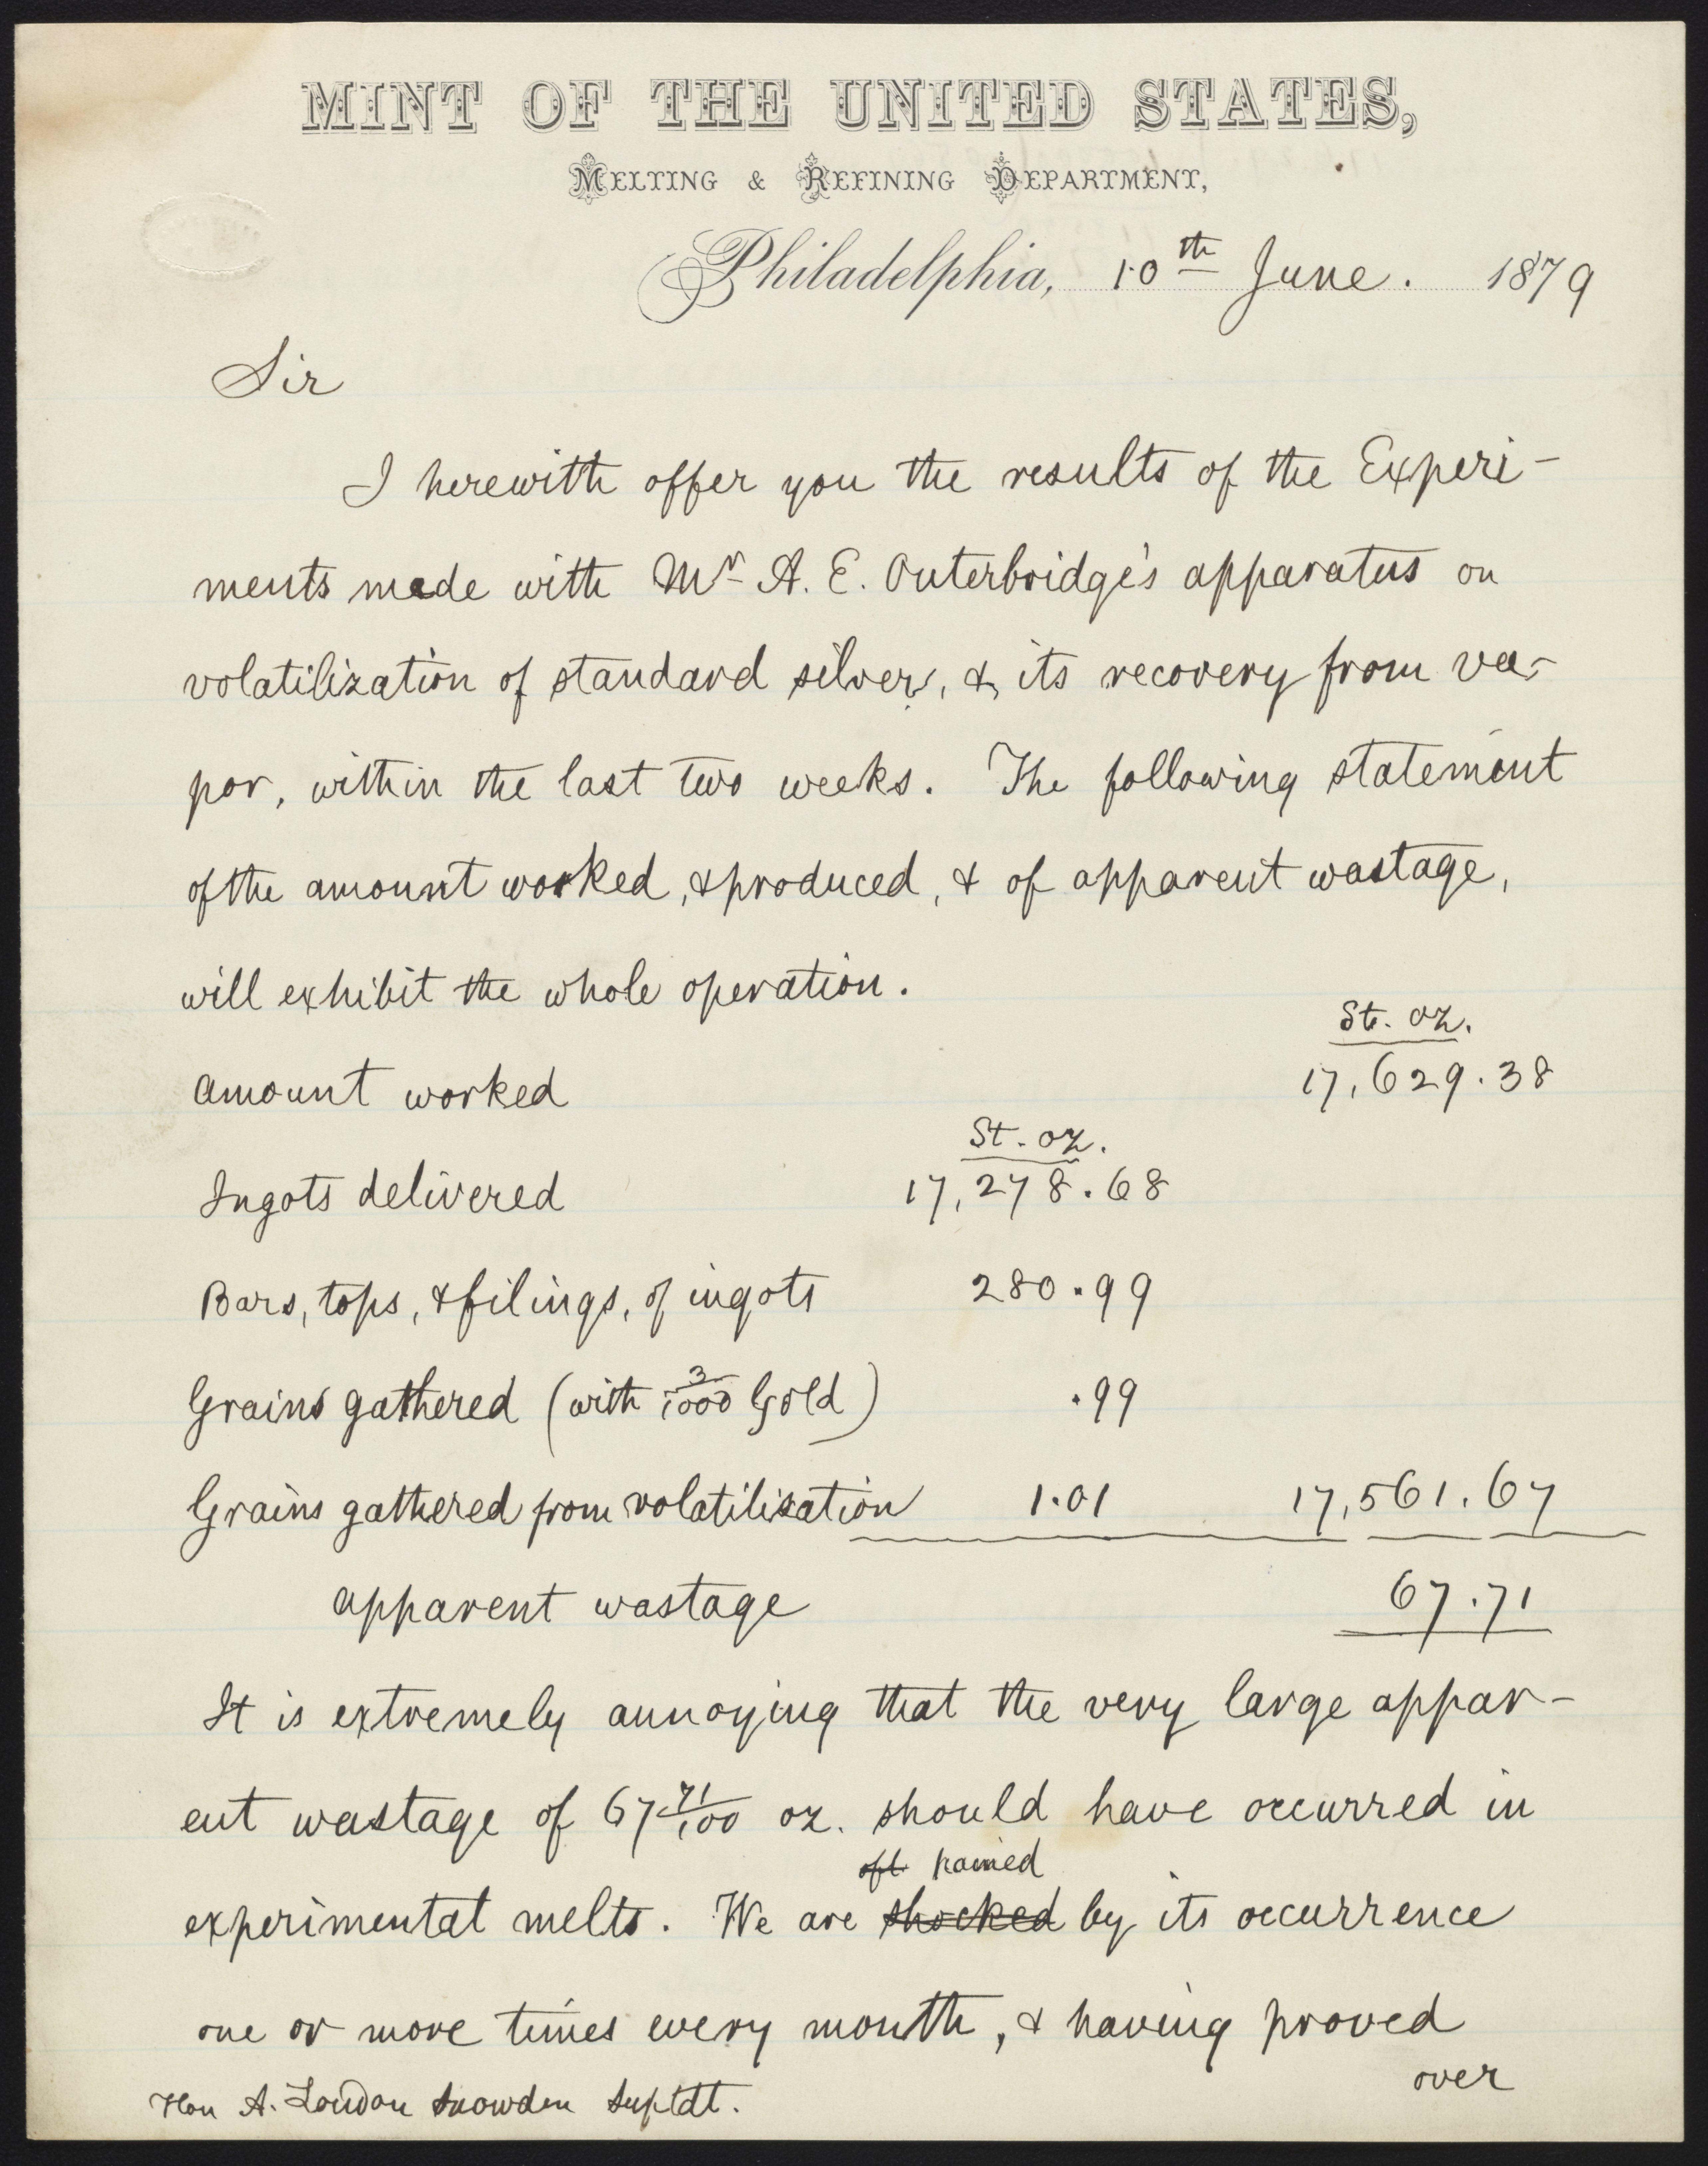 MINT OF THE UNITED STATES,
MELTING & REFINING DEPARTMENT,
Philadelphia, 10th June. 1879
Sir
I herewith offer you the results of the Experi-
ments made with Mr A. E. Outerbridge's apparatus on
volatilization of standard silver, & its recovery from va-
por, within the last two weeks. The following statement
of the amount worked, & produced, & of apparent wastage,
will exhibit the whole operation.
St. oz.
Amount worked 17,629.38
St. oz.
Ingots delivered 17,278.68
Bars, tops, & filings, of ingots 280.99
Grains gathered (with 3/1000 Gold) .99
Grains gathered from volatilization 1.01 17,561.67
apparent wastage 67.71
It is extremely annoying that the very large appar-
ent wastage of 67 71/100 oz. should have occurred in
pained
experimental melts. We are shocked by its occurrence
one or more times every month, & having proved
over
Hon A. Loudon Snowden Suptdt.